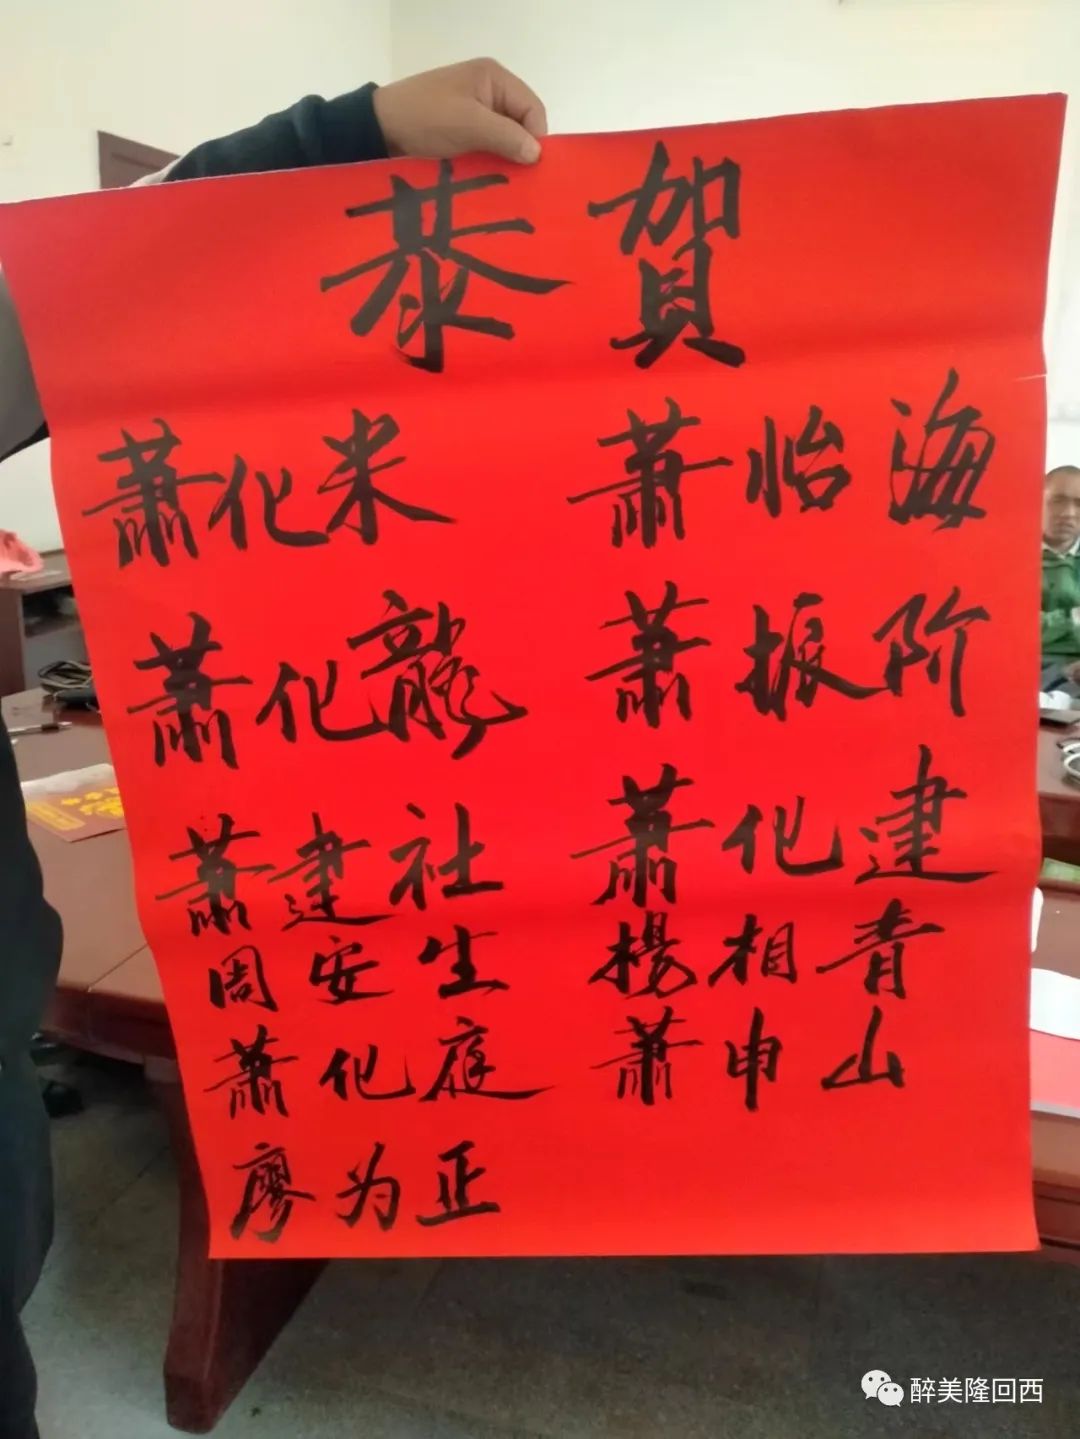 恭賀
蕭化米 蕭怡海
蕭化龍 蕭振阶
蕭建社 蕭化建
周安生 楊相青
蕭化庭 蕭申山
廖为正
醉美隆回西